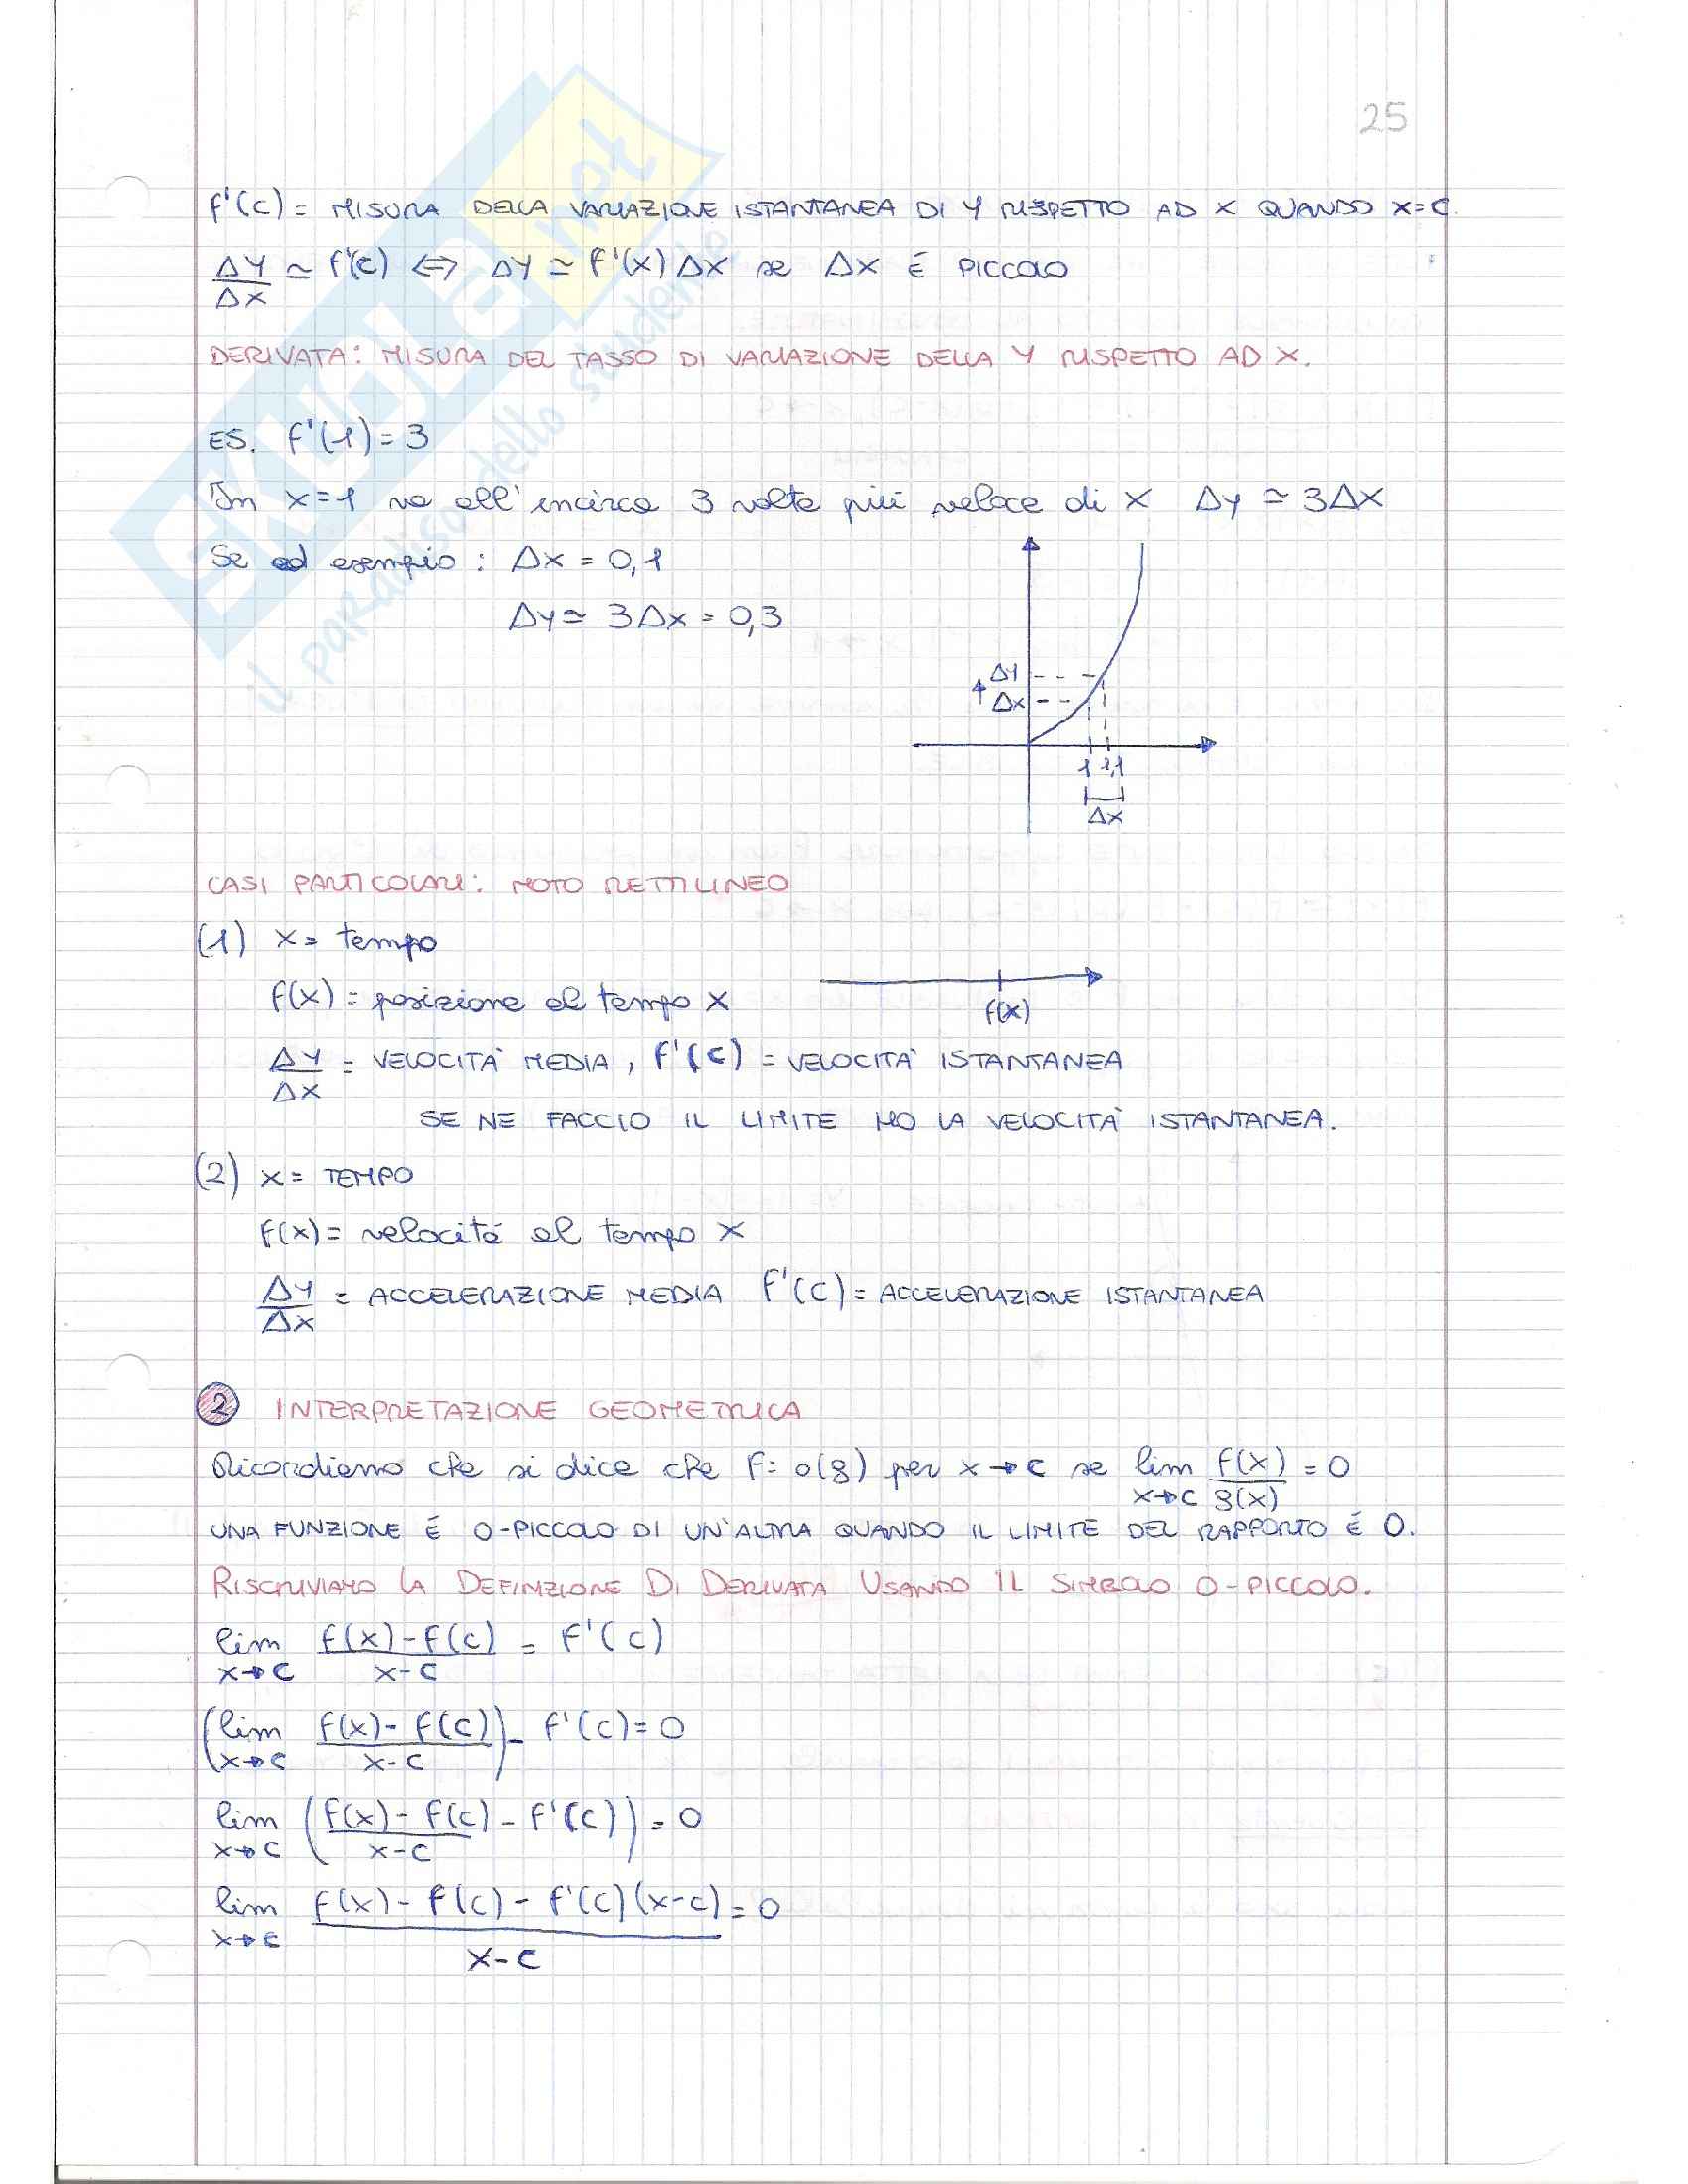 25
f'(c) = MISURA DELLA VARIAZIONE ISTANTANEA DI Y RISPETTO AD X QUANDO X=C.
ΔY/ΔX ≃ f'(c) ⟺ ΔY ≃ f'(x) ΔX se ΔX É PICCOLO
DERIVATA: MISURA DEL TASSO DI VARIAZIONE DELLA Y RISPETTO AD X.
ES. f'(1) = 3
In x=1 va all'incirca 3 volte più veloce di x Δy ≃ 3Δx
Se ad esempio: Δx = 0,1
Δy ≃ 3Δx = 0,3
ΔY
Δx
1 1,1
Δx
CASI PARTICOLARI: MOTO RETTILINEO
(1) x = tempo
f(x) = posizione al tempo x
f(x)
ΔY/ΔX = VELOCITÀ MEDIA, f'(c) = VELOCITÀ ISTANTANEA
SE NE FACCIO IL LIMITE HO LA VELOCITÀ ISTANTANEA.
(2) x = TEMPO
f(x) = velocitá al tempo x
ΔY/ΔX = ACCELERAZIONE MEDIA f'(c) = ACCELERAZIONE ISTANTANEA
2 INTERPRETAZIONE GEOMETRICA
Ricordiamo che si dice che f = o(g) per x→c se lim x→c f(x)/g(x) = 0
UNA FUNZIONE É O-PICCOLO DI UN'ALTRA QUANDO IL LIMITE DEL RAPPORTO É 0.
RISCRIVIAMO LA DEFINIZIONE DI DERIVATA USANDO IL SIMBOLO O-PICCOLO.
lim x→c (f(x)-f(c))/(x-c) = f'(c)
(lim x→c (f(x)-f(c))/(x-c)) - f'(c) = 0
lim x→c ((f(x)-f(c))/(x-c) - f'(c)) = 0
lim x→c (f(x)-f(c)-f'(c)(x-c))/(x-c) = 0
SKUOLA.net
il paradiso dello studente